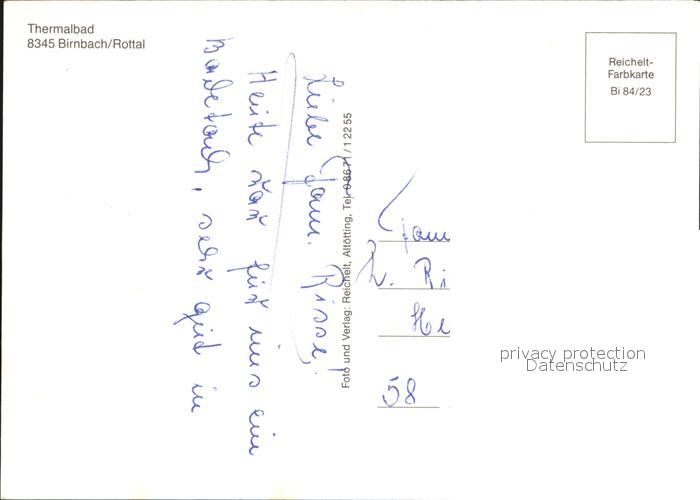 Thermalbad
8345 Birnbach/Rottal
Reichelt-
Farbkarte
Bi 84/23
Liebe Fam. Risse!
Heute war für uns ein
Badetach, sehr gut in
Foto und Verlag: Reichelt, Altötting, Tel. 08671/12255
Fam
Ri
He
58
privacy protection
Datenschutz